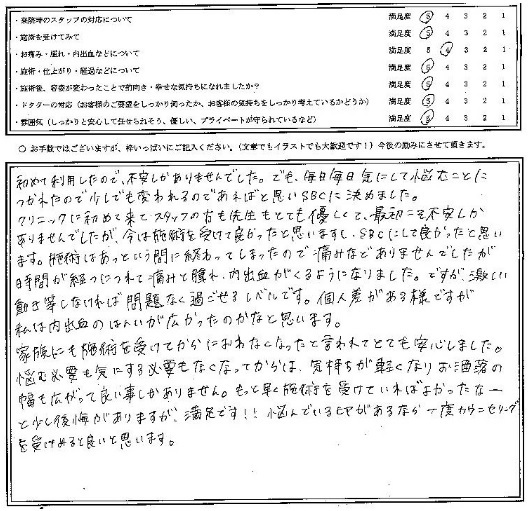 ・来院時のスタッフの対応について 満足度 5 4 3 2 1
・施術を受けてみて 満足度 5 4 3 2 1
・お痛み・腫れ・内出血などについて 満足度 5 4 3 2 1
・施術・仕上がり・経過などについて 満足度 5 4 3 2 1
・施術後、容姿が変わったことで前向き・幸せな気持ちになれましたか？ 満足度 5 4 3 2 1
・ドクターの対応（お客様のご要望をしっかり伺ったか、お客様の気持ちをしっかり考えているかどうか） 満足度 5 4 3 2 1
・雰囲気（しっかりと安心して任せられそう、優しい、プライベートが守られているなど） 満足度 5 4 3 2 1
○ お手数ではございますが、枠いっぱいにご記入ください。（文章でもイラストでも大歓迎です！）今後の励みにさせて頂きます。
初めて利用したので、不安しかありませんでした。でも、毎日毎日気にして悩むことに
つかれたので少しでも変われるのであればと思いSBCに決めました。
クリニックに初めて来てスタッフの方も先生もとても優しくて、最初こそ不安しか
ありませんでしたが、今は施術を受けて良かったと思いますし、SBCにして良かったと思い
ます。施術はあっという間に終わってしまったので痛みなどありませんでしたが
時間が経つにつれて痛みで腫れ、内出血がくるようになりました。ですが、激しい
動き等しなければ問題なく過ごせるレベルです。個人差がある様ですが
私は内出血のはんいが広かったのかなと思います。
家族にも施術を受けてからにおわなくなったと言われてとても安心しました。
悩む必要も気にする必要もなくなってからは、気持ちが軽くなりお洒落の
幅も広がって良い事しかありません。もっと早く施術を受けていればよかったなー
と少し後悔がありますが、満足です！！悩んでいる方があるなら一度カウンセリング
を受けめると良いと思います。